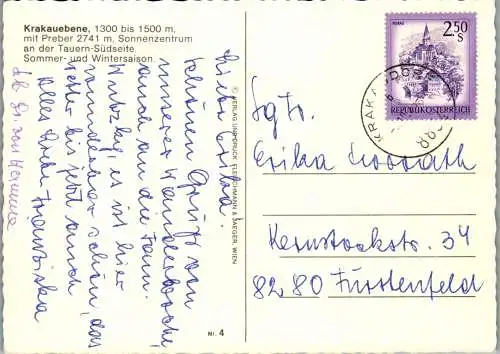 Krakauebene, 1300 bis 1500 m,
mit Preber 2741 m, Sonnenzentrum
an der Tauern-Südseite.
Sommer- und Wintersaison.
Liebe Erika!
schönen Gruß von
unserer Wanderwoche,
auch an die Fam.
es ist hier
wunderbar schön, das
Wetter bis jetzt auch
Alles Liebe Franziska
© VERLAG UND DRUCK FLEISCHMANN & JAEGER, WIEN
Nr. 4
MURAU
2.50
S
REPUBLIK ÖSTERREICH
KRAKAUDORF
Sgte.
Erika
Kernstockstr. 34
8280 Fürstenfeld